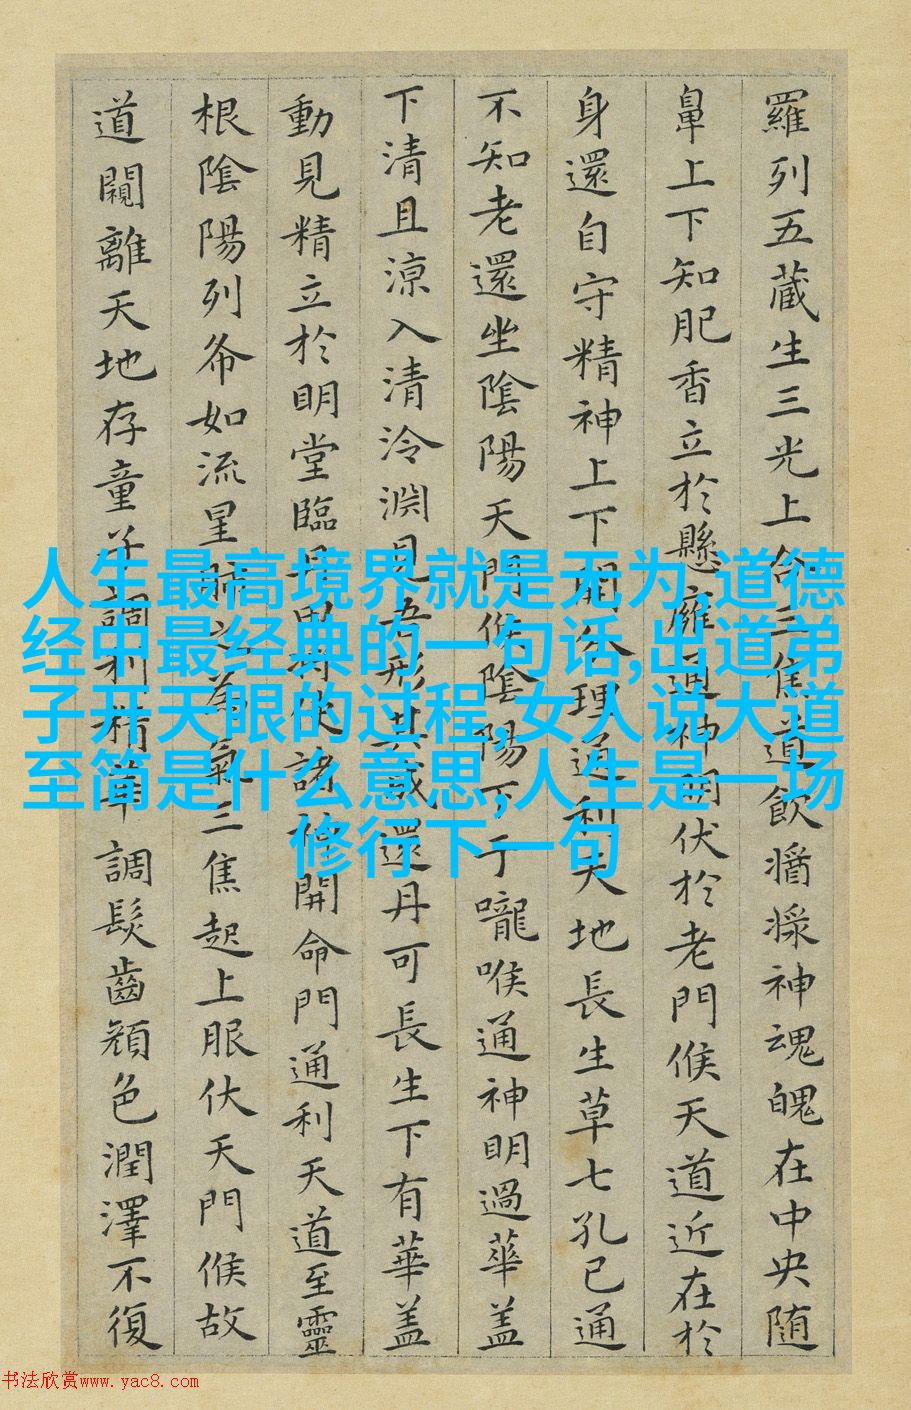 羅列五藏生三光上合三焦道飲醬漿神魂魄在中央随
鼻上下知肥香立於懸廱通神明伏於老門候天道近在於
身還自守精神上下開分理通利天地長生草七孔已通
不知老還坐陰陽天門候陰陽下于嚨喉通神明過華盖
下清且涼入清泠淵見吾形其成還丹可長生下有華盖
動見精立於明堂臨丹田將使諸神開命門通利天道至靈
根陰陽列布如流星肺之為氣三焦起上服伏天門候故
道闚離天地存童子調利精華調髮齒顔色潤澤不復
人生最高境界就是无为,道德
经中最经典的一句话,出道弟
子开天眼的过程,女人说大道
至简是什么意思,人生是一场
修行下一句
书法欣赏www.yac8.com